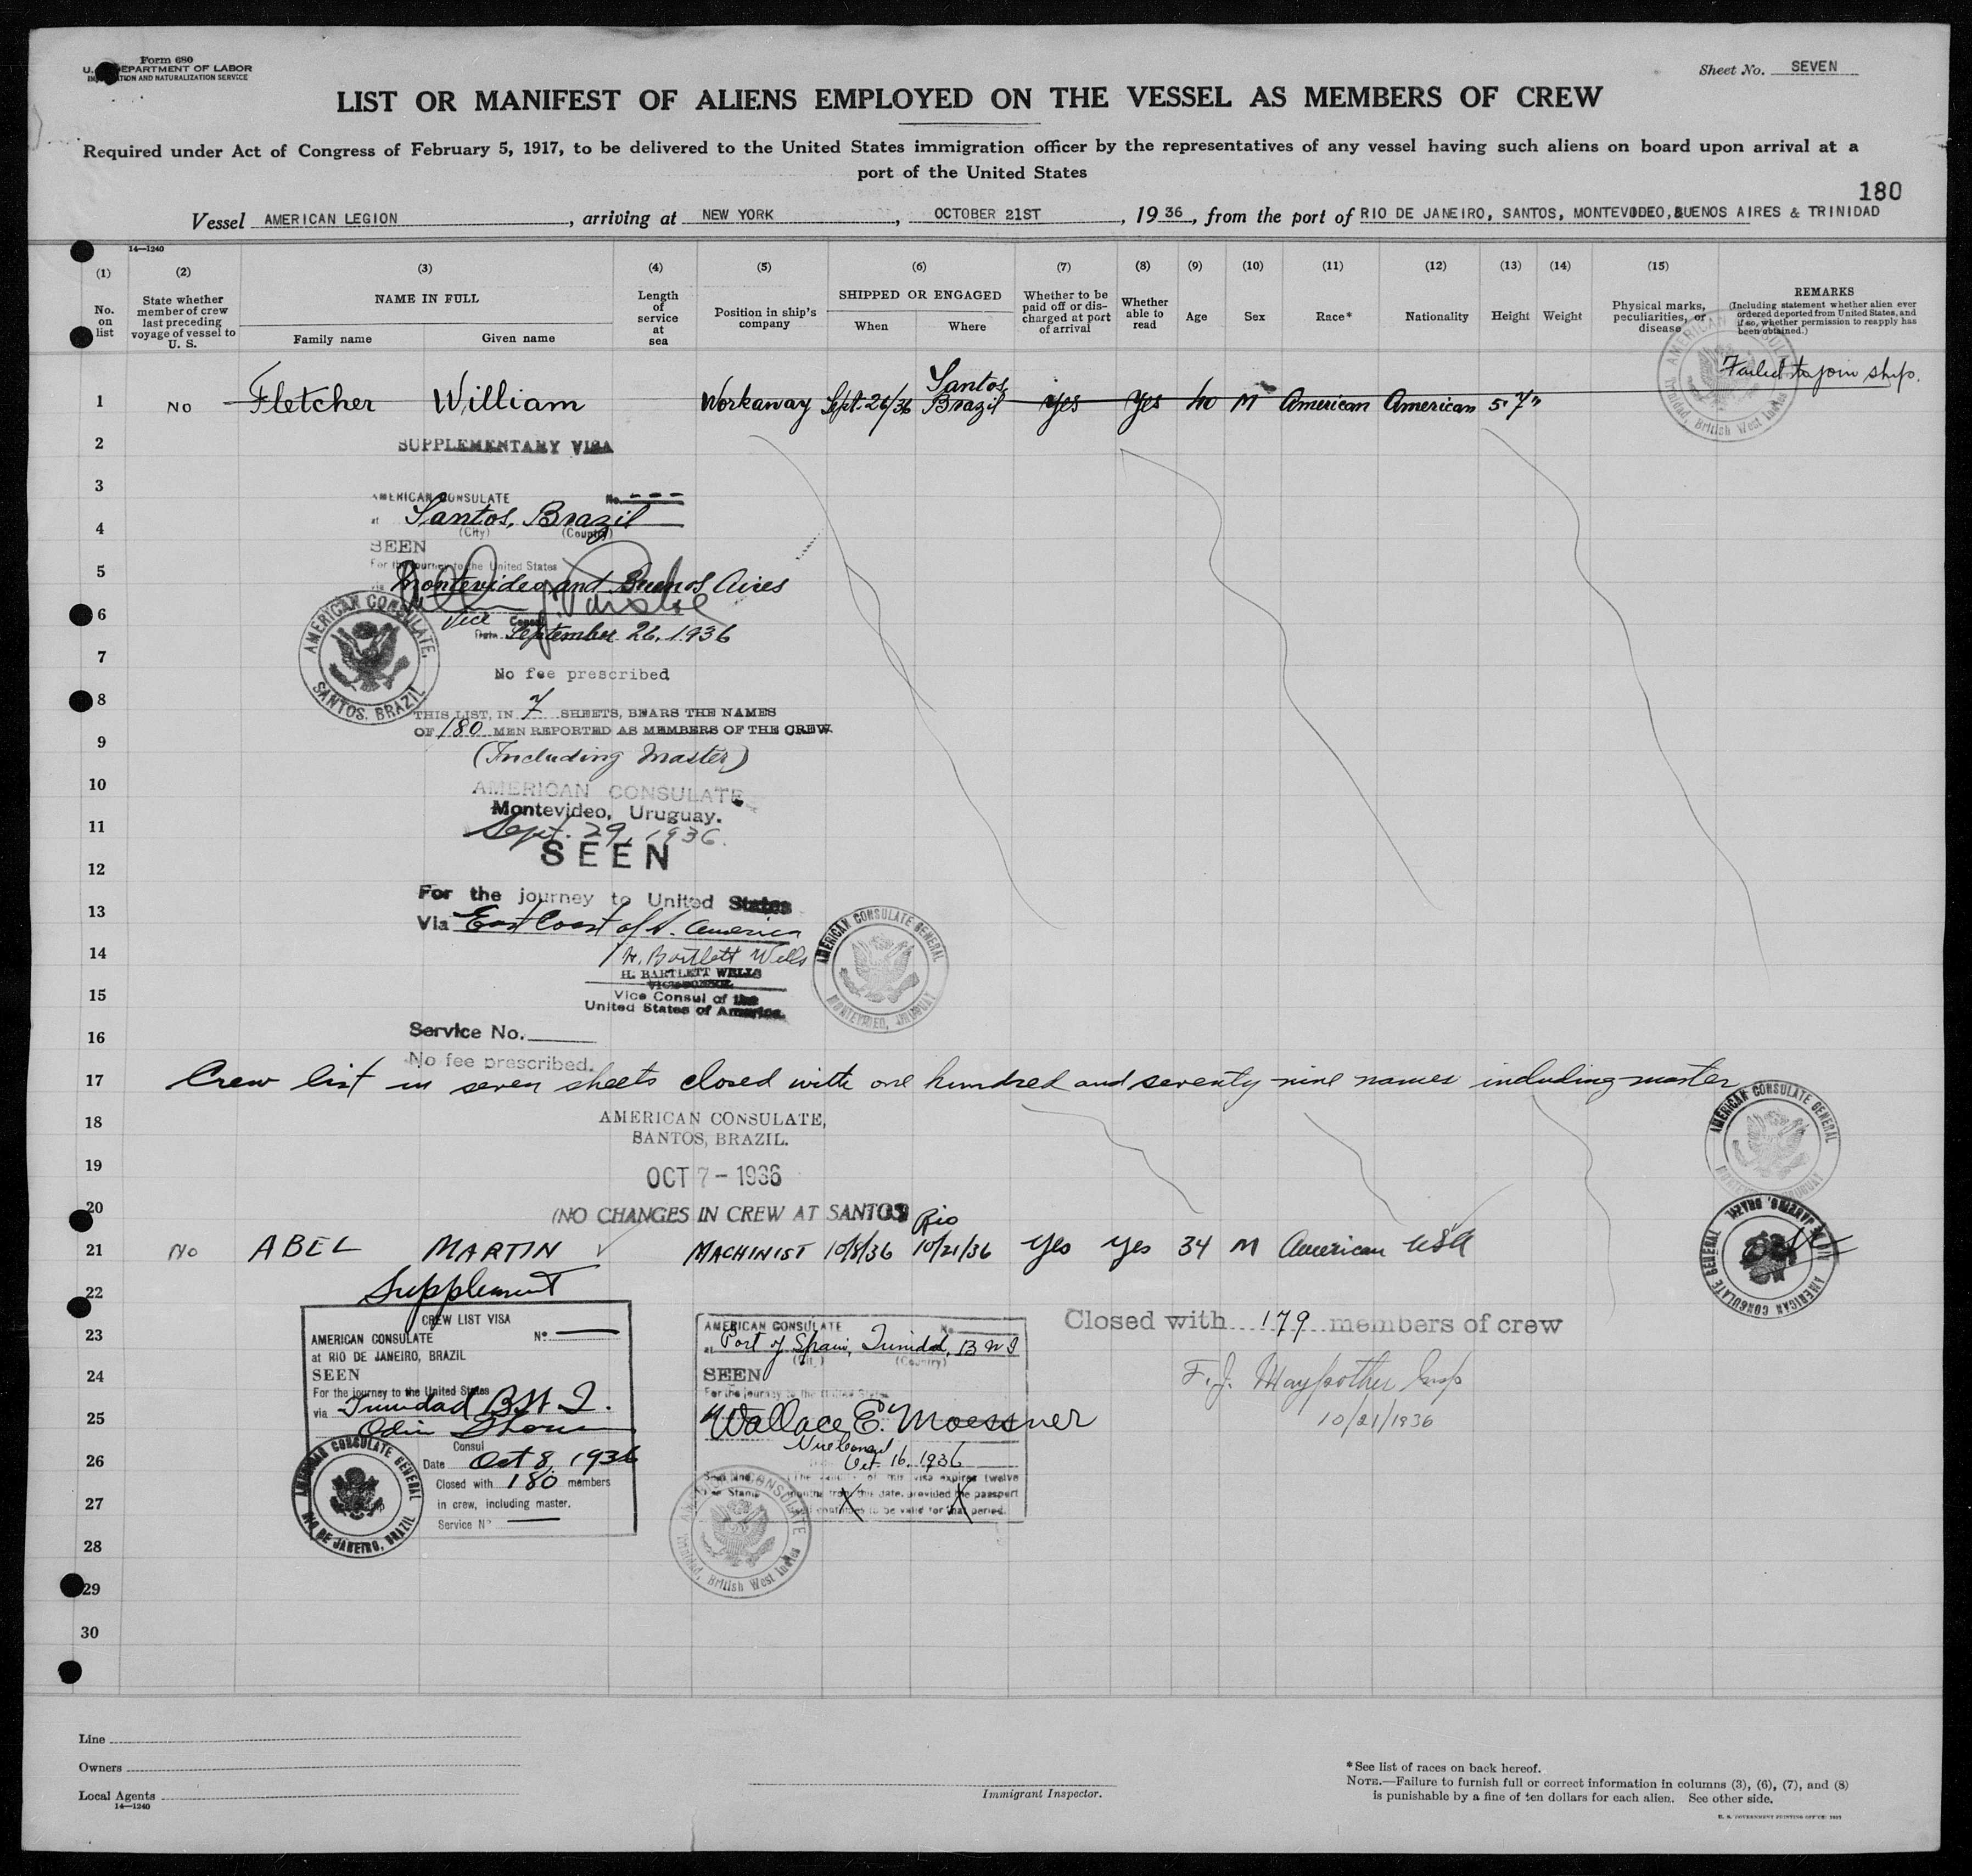 Form 680
U. DEPARTMENT OF LABOR
IMMIGRATION AND NATURALIZATION SERVICE
Sheet No. SEVEN
LIST OR MANIFEST OF ALIENS EMPLOYED ON THE VESSEL AS MEMBERS OF CREW
Required under Act of Congress of February 5, 1917, to be delivered to the United States immigration officer by the representatives of any vessel having such aliens on board upon arrival at a
port of the United States
180
Vessel AMERICAN LEGION, arriving at NEW YORK, OCTOBER 21ST, 1936, from the port of RIO DE JANEIRO, SANTOS, MONTEVIDEO, BUENOS AIRES & TRINIDAD
14—1240
(1) (2) (3) (4) (5) (6) (7) (8) (9) (10) (11) (12) (13) (14) (15)
No. on list
State whether member of crew last preceding voyage of vessel to U. S.
NAME IN FULL
Family name Given name
Length of service at sea
Position in ship's company
SHIPPED OR ENGAGED
When Where
Whether to be paid off or discharged at port of arrival
Whether able to read
Age
Sex
Race*
Nationality
Height
Weight
Physical marks, peculiarities, or disease
REMARKS
(Including statement whether alien ever ordered deported from United States, and if so, whether permission to reapply has been obtained.)
AMERICAN CONSULATE Trinidad, British West Indies
Failed to join ship.
1 No Fletcher William Workaway Sept. 26/36 Santos Brazil yes Yes 40 M American American 5' 7"
2
SUPPLEMENTARY VISA
3
AMERICAN CONSULATE No. ---
4
at Santos, Brazil
(City) (Country)
SEEN
For the journey to the United States
5
via Montevideo and Buenos Aires
6
Vice Consul
Date September 26, 1936
AMERICAN CONSULATE, SANTOS, BRAZIL
7
No fee prescribed
8
THIS LIST, IN 7 SHEETS, BEARS THE NAMES
OF 180 MEN REPORTED AS MEMBERS OF THE CREW.
9
(Including Master)
10
AMERICAN CONSULATE
Montevideo, Uruguay.
11
Sept. 29, 1936.
SEEN
12
For the journey to United States
13
Via East Coast of S. America
14
H. Bartlett Wells
H. BARTLETT WELLS
VICE CONSUL
15
Vice Consul of the
United States of America.
AMERICAN CONSULATE GENERAL MONTEVIDEO, URUGUAY
16
Service No.
No fee prescribed.
17
Crew list in seven sheets closed with one hundred and seventy-nine names including master
AMERICAN CONSULATE GENERAL MONTEVIDEO, URUGUAY
18
AMERICAN CONSULATE,
SANTOS, BRAZIL.
19
OCT 7 - 1936
20
(NO CHANGES IN CREW AT SANTOS)
Rio
21 No ABEL MARTIN MACHINIST 10/8/36 10/21/36 Yes yes 34 M American USA
AMERICAN CONSULATE GENERAL RIO DE JANEIRO, BRAZIL
Supplement
22
CREW LIST VISA
23
AMERICAN CONSULATE No
at RIO DE JANEIRO, BRAZIL
24
SEEN
For the journey to the United States
25
via Trinidad B.W.I.
Consul
26
Date Oct 8, 1936
Closed with 180 members
27
in crew, including master.
Service No
AMERICAN CONSULATE GENERAL RIO DE JANEIRO, BRAZIL
AMERICAN CONSULATE No.
at Port of Spain, Trinidad, B W I
(City) (Country)
SEEN
For the journey to the United States
Wallace E. Moessner
Vice Consul
Oct. 16, 1936
The validity of this visa expires twelve
months from this date, provided the passport
continues to be valid for that period.
AMERICAN CONSULATE Trinidad, British West Indies
Closed with 179 members of crew
F. J. Maypother Insp
10/21/1936
28
29
30
Line
Owners
Local Agents
14—1240
Immigrant Inspector.
*See list of races on back hereof.
NOTE.—Failure to furnish full or correct information in columns (3), (6), (7), and (8)
is punishable by a fine of ten dollars for each alien. See other side.